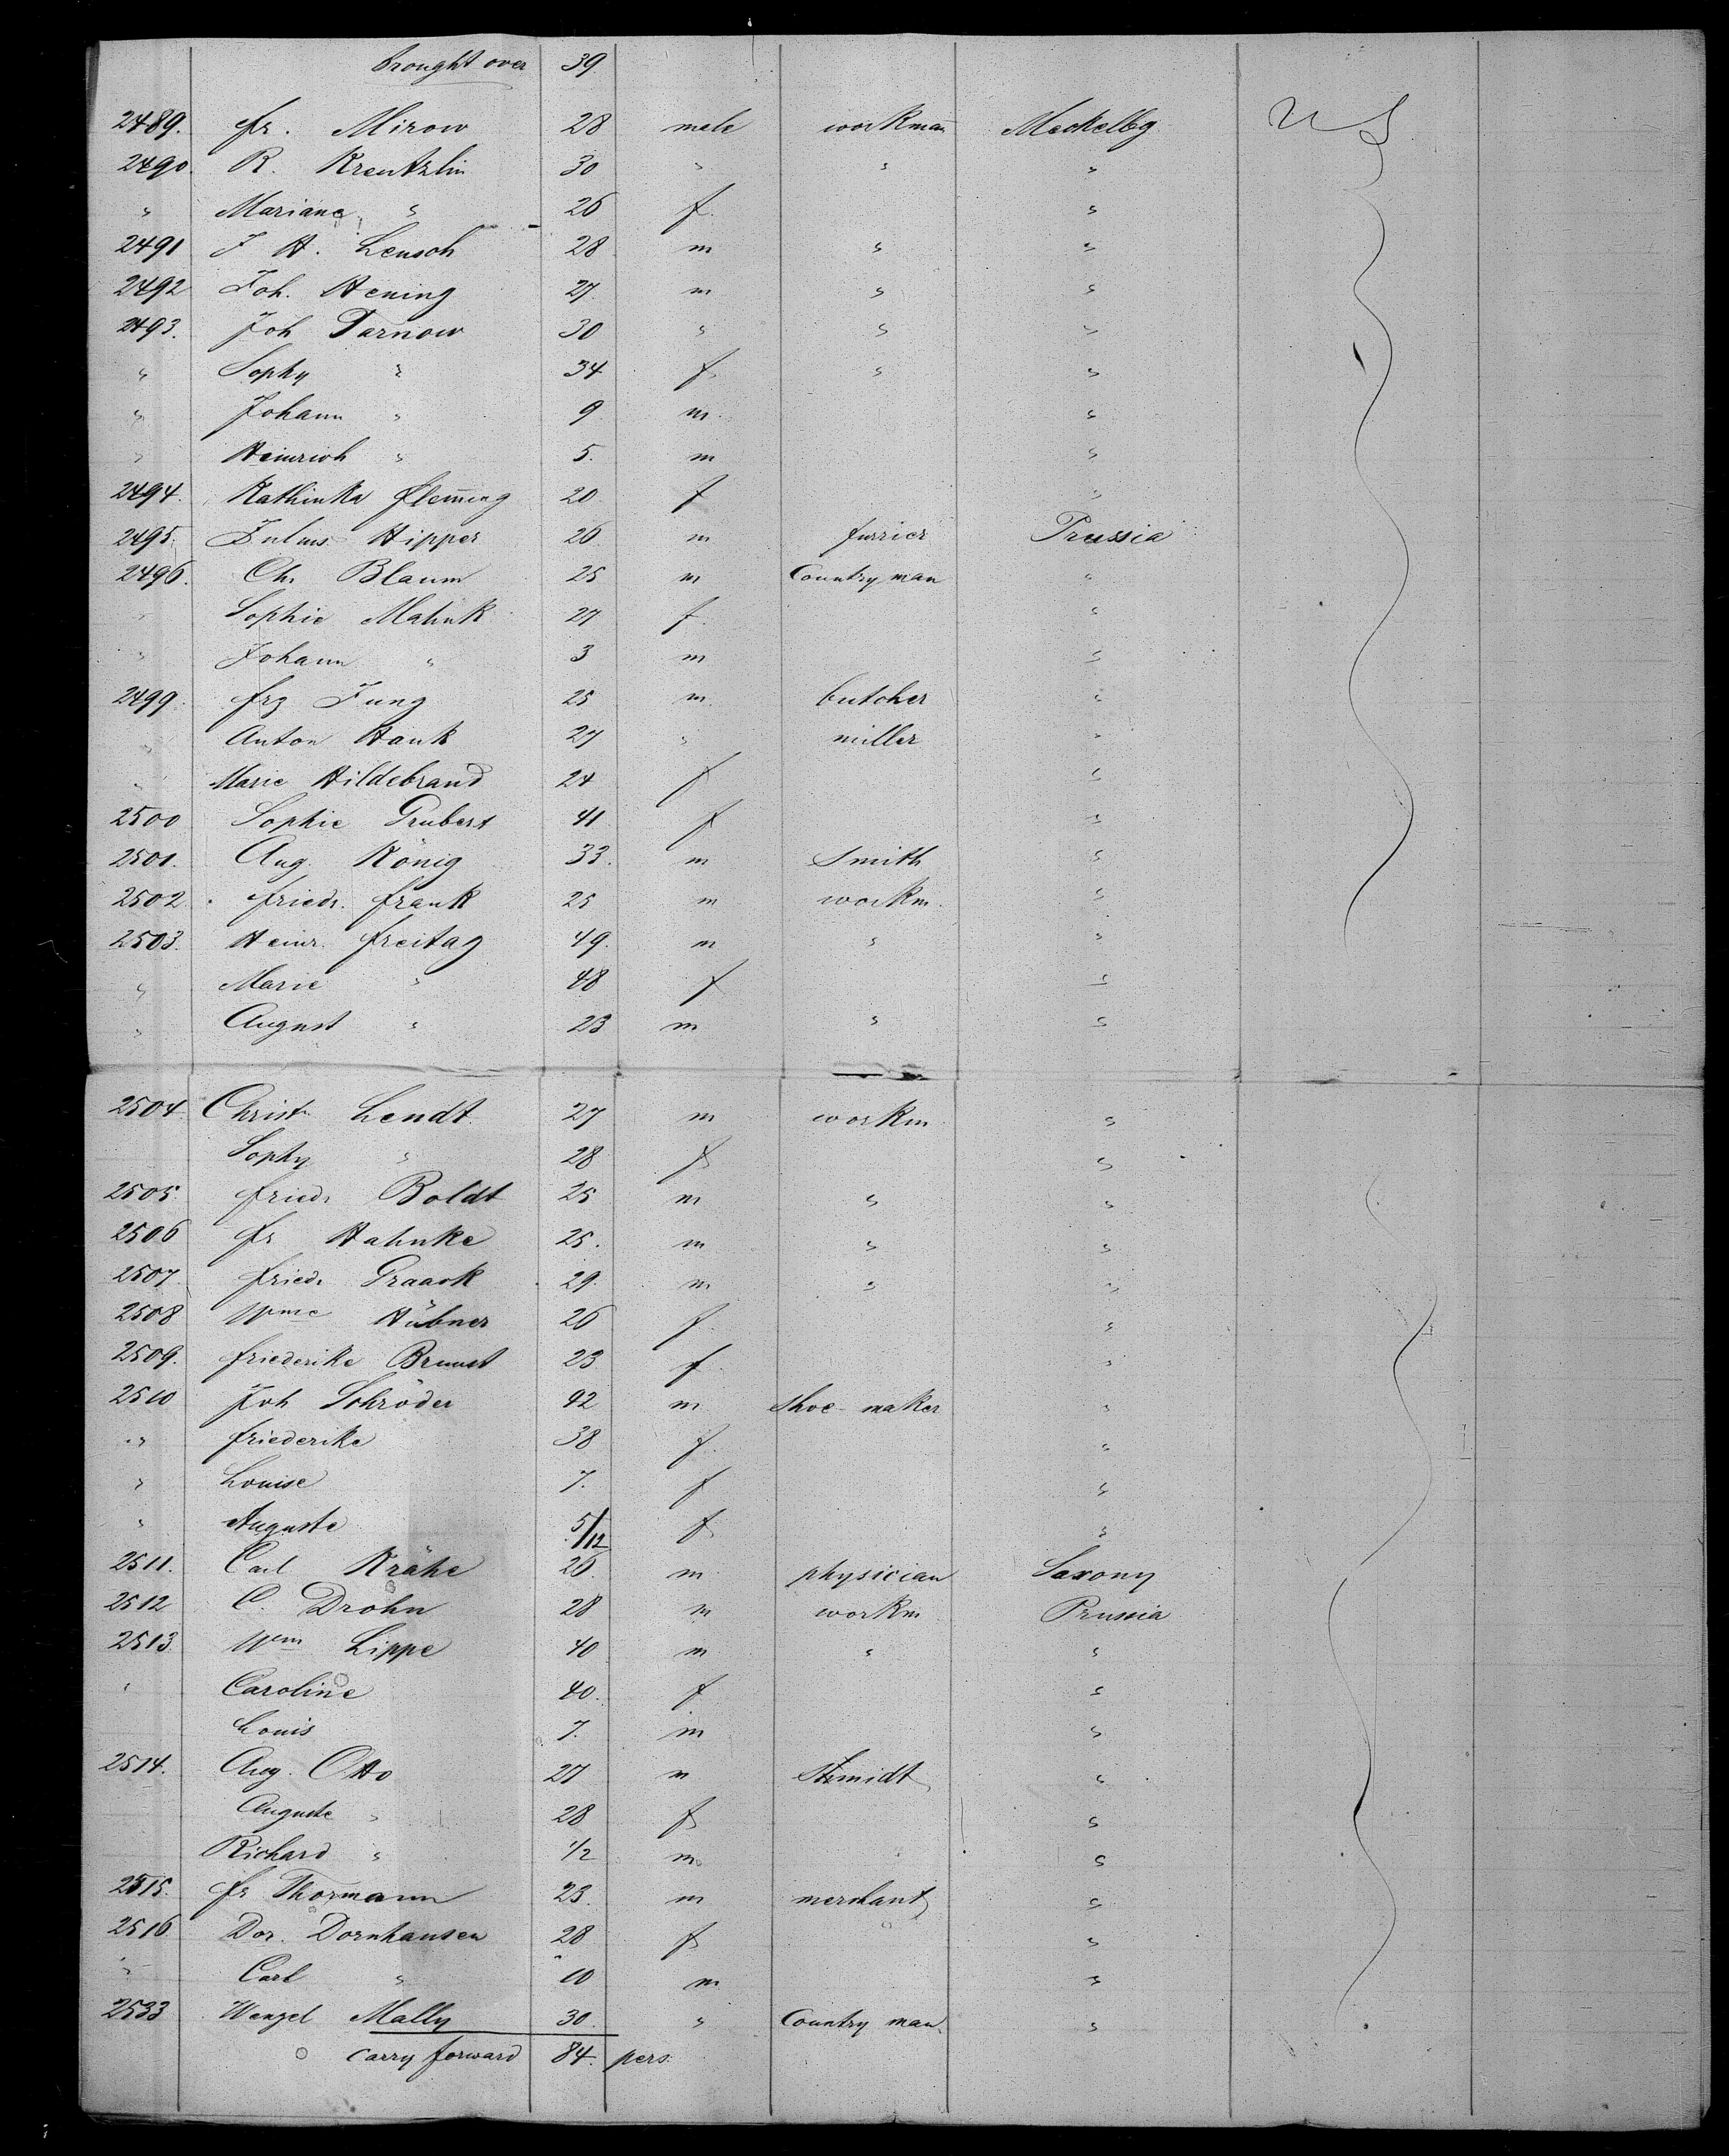 brought over 39
2489. Fr. Mirow 28 male workman Meckelbg U S
2490. R. Kreutzlin 30 " " "
" Mariane " 26 f. "
2491 J H. Lensch 28 m " "
2492 Joh. Hening 27 m " "
2493. Joh Tarnow 30 " " "
" Sophy " 34 f " "
" Johann " 9 m. "
" Heinrich " 5. m "
2494. Kathinka Flem̄ing 20 f "
2495. Julius Hipper 26 m furrier Prussia
2496. Chr Blaum 25 m Country man "
" Sophie Mahnk 27 f. "
" Johann " 3 m "
2499. Frz Jung 25 m. butcher "
" Anton Hank 27 " miller "
" Marie Hildebrand 24 f "
2500 Sophie Grubert 41 f "
2501. Aug. König 33. m Smith "
2502 Friedr. Frank 25 m workm. "
2503. Heinr. Freitag 49. m " "
" Marie " 48 f "
" August " 23 m " "
2504 Christ Lendt 27 m workm "
Sophy " 28 f "
2505. Friedr Boldt 25 m " "
2506 Fr Hahnke 25. m " "
2507. Friedr Graack 29. m " "
2508 Wme Hübner 26 f. "
2509. Friederike Brunst 23 f. "
2510 Joh Schröder 42 m Shoe maker "
" Friederike 38 f. "
" Louise 7. f "
" Auguste 5/12 f "
2511. Carl Krähe 26. m physician Saxony
2512 C. Dröhn 28 m workm Prussia
2513. Wm Lippe 40 m " "
" Caroline 40. f "
Louis 7. m "
2514. Aug. Otto 27 m Shmidt "
Auguste " 28 f "
Richard " 1/2 m "
2515. Fr Thormann 23. m merchant "
2516. Dor. Dornhausen 28 f "
" Carl " 10 m "
2533 Wenzel Mally 30. " Country man "
carry forward 84. pers.